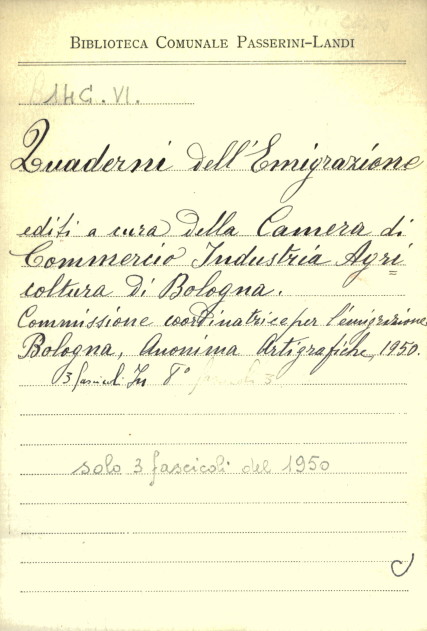 BIBLIOTECA COMUNALE PASSERINI-LANDI
14C.VI.
Quaderni dell'Emigrazione
editi a cura della Camera di
Commercio Industria Agri
coltura di Bologna.
Commissione coordinatrice per l'emigrazione
Bologna, Anonima Artigrafiche, 1950.
3 fascicoli In 8°
solo 3 fascicoli del 1950